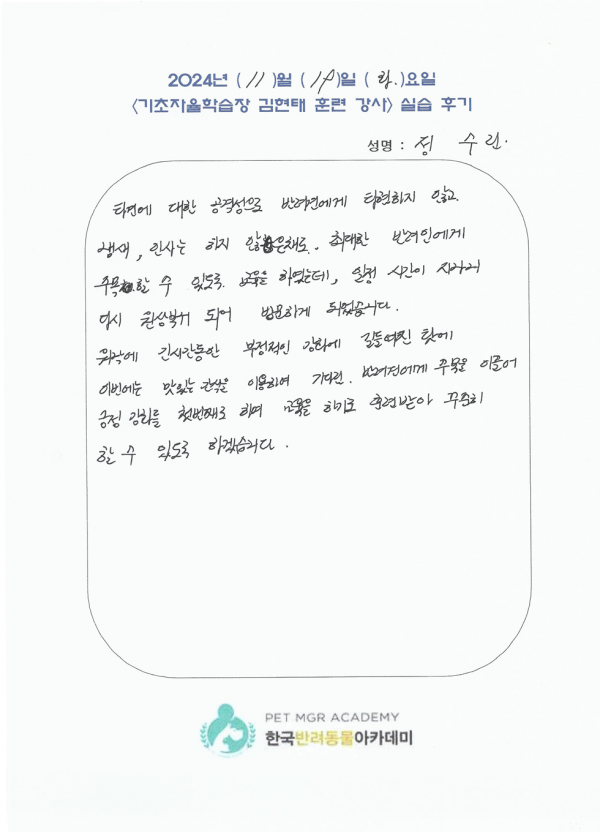 2024년 (11)월 (19)일 (화.)요일
<기초자율학습장 김현태 훈련 강사> 실습 후기
성명 : 정 수린.
타견에 대한 공격성으로 반려견에게 터치하지 않고
냄새, 인사는 하지 않은채로. 최대한 반려인에게
주목할 수 있도록 교육을 하였는데, 일정 시간이 지나
다시 원상복귀 되어 방문하게 되었습니다.
워낙에 긴시간동안 부정적인 강화에 길들여진 탓에
이번에는 맛있는 간식을 이용하여 기다란. 반려견에게 주목을 이끌어
긍정 강화를 첫번째로 하여 교육을 하기로 훈련받아 꾸준히
할 수 있도록 하겠습니다.
PET MGR ACADEMY
한국반려동물아카데미